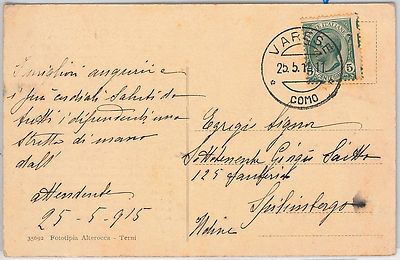 I migliori auguri e
i più cordiali saluti da
tutti i dipendenti una
stretta di mano
dall'
attendente
25-5-915
35692 Fototipia Alterocca - Terni
VARESE
25.5.15
COMO
POSTE ITALIANE
5
Egregio Signor
Sottotenente
125 fanteria
Spilimbergo
Udine